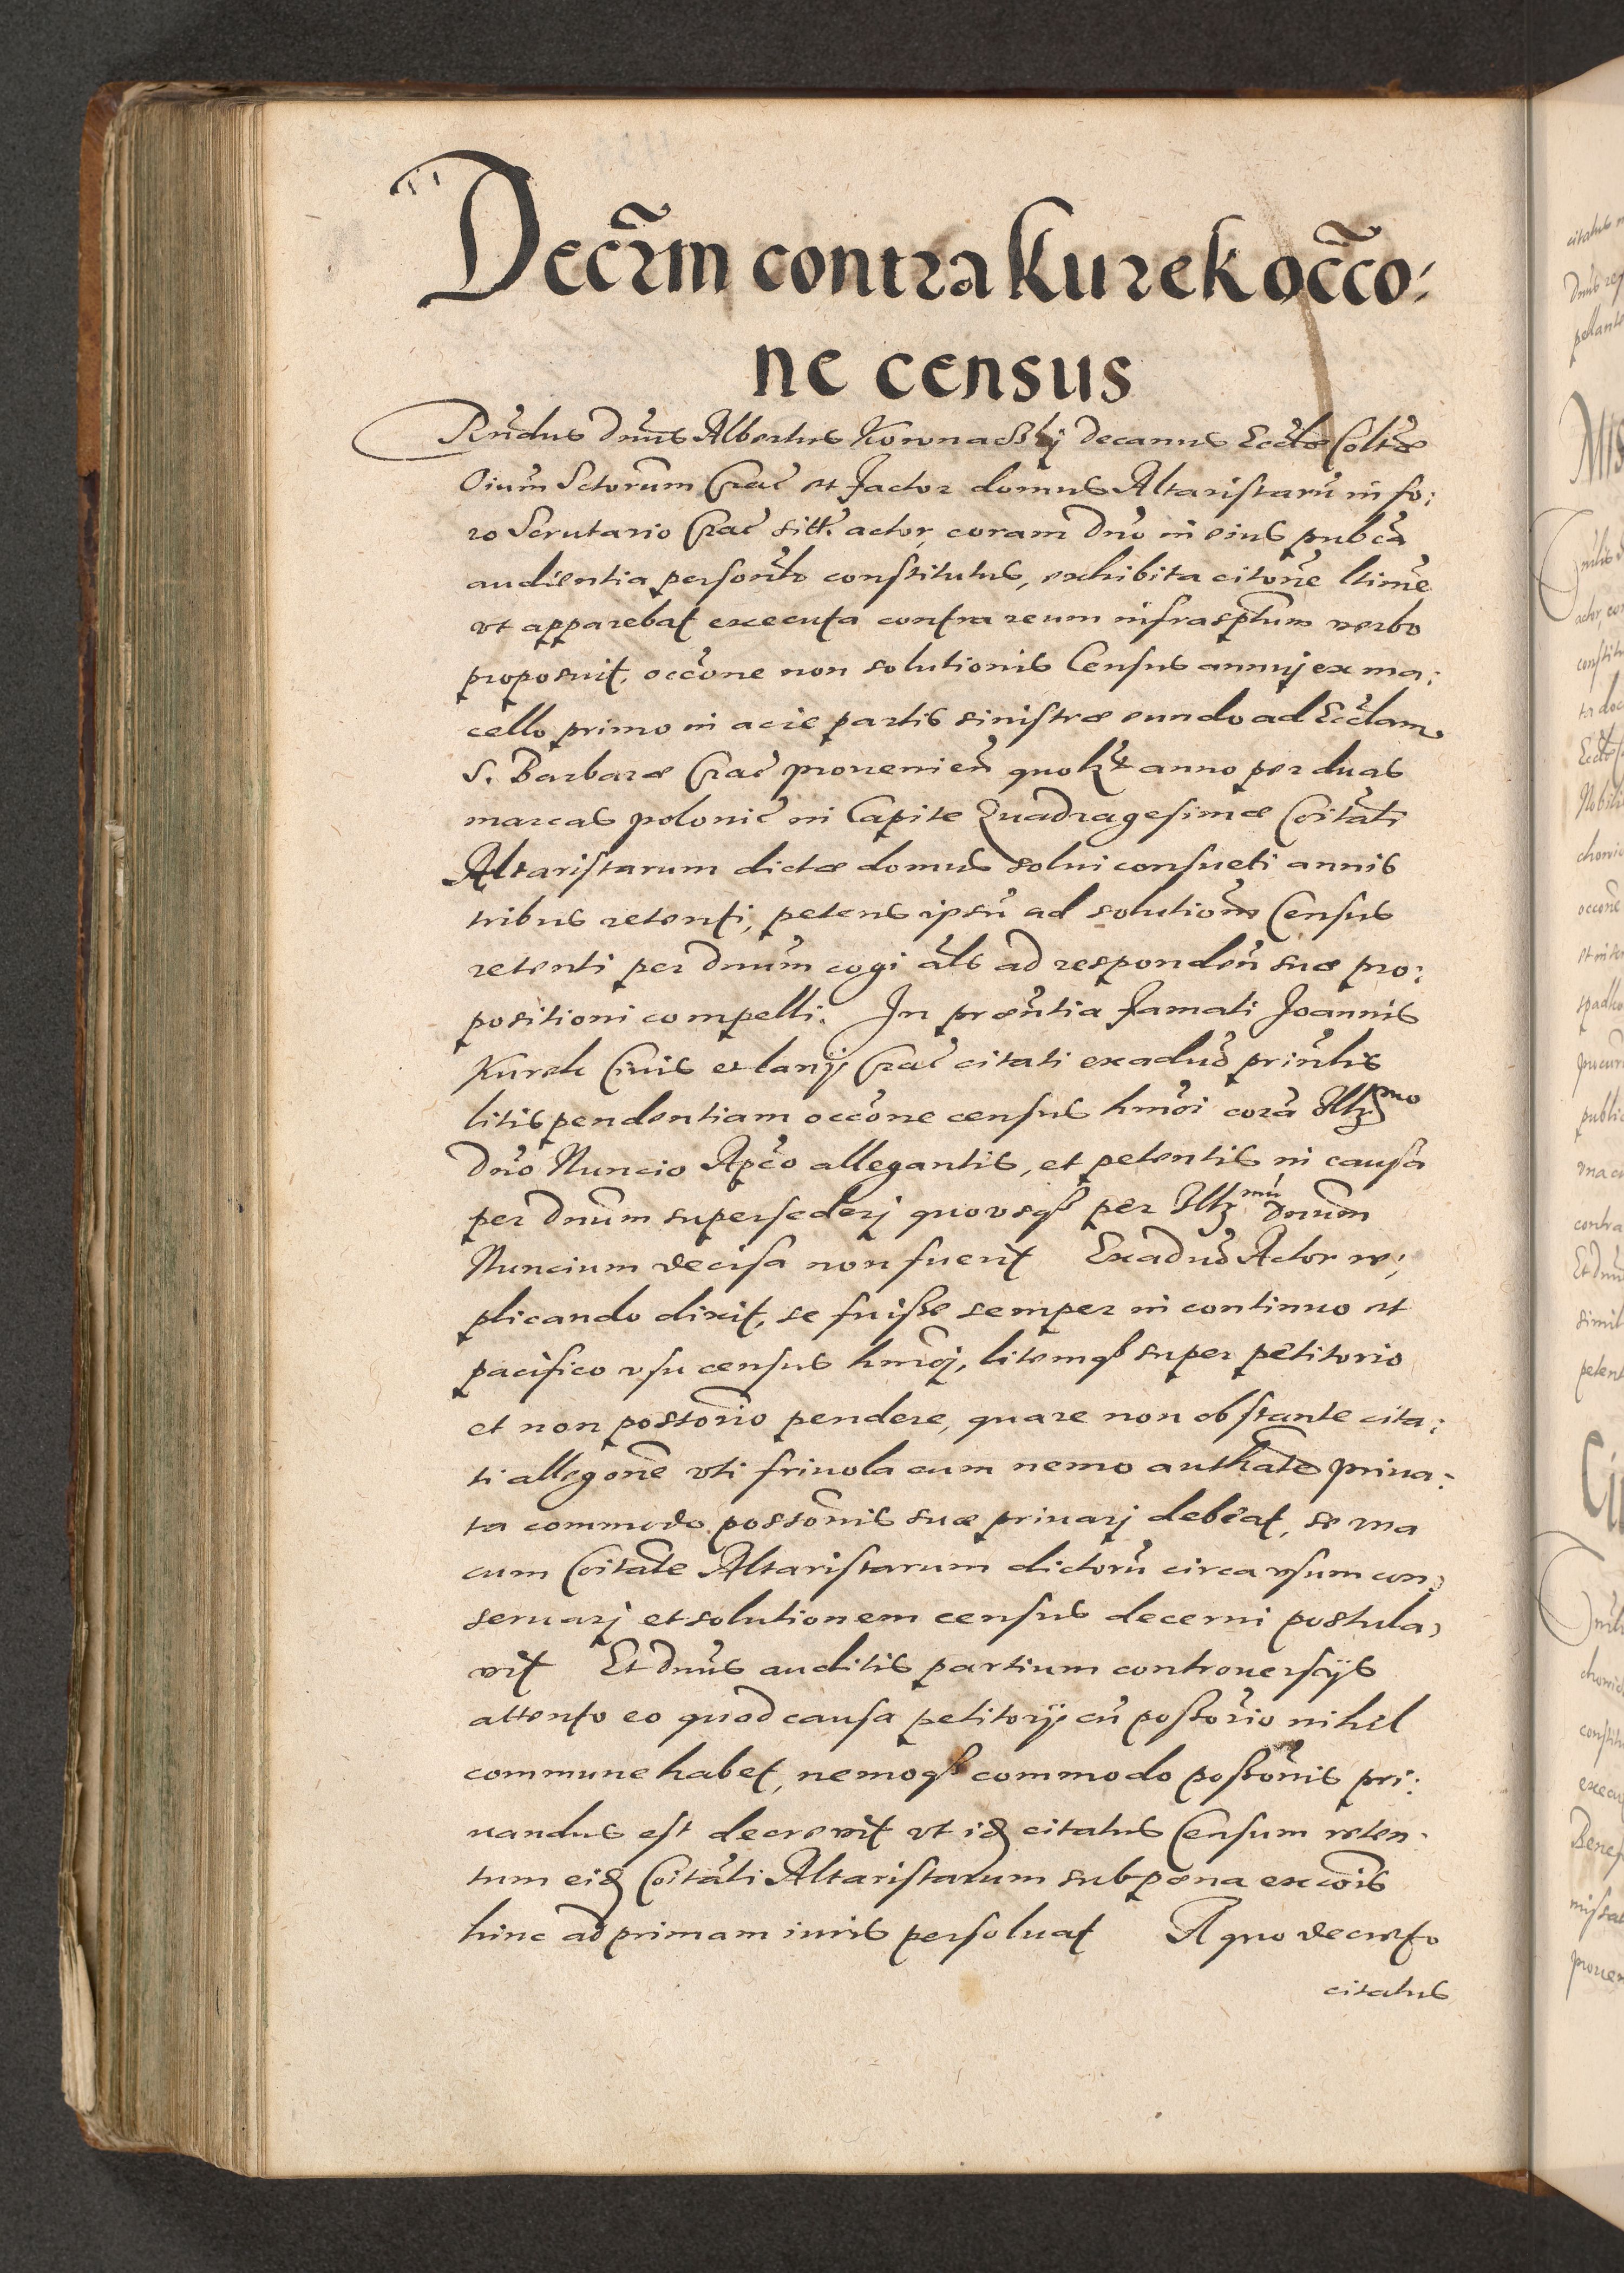 Decr̃m contra Kurek occ̃o:
ne census
Rñdus Dnũs Albertus Kownaczkj Decanus Eccl̃æ Coll̃æ
Oium̃ Sctorum̃ Crac̃ et Factor domus Altaristarũ in fo:
ro Scrutario Crac̃ sitt̃. actor, coram Dnõ in eius pub̃ca
audientia person̄lr̃ constitutus, exhibita citon̄e ltim̃e
vt apparebat executa contra reum infrasptum̃ verbo
proposuit, occõne non solutionis Census annuj ex ma:
cello primo in acie partis sinistræ eundo ad Eccl̃am
S. Barbaræ Crac̃ prouenieñ quolzt anno per duas
marcas polonic̃ in Capite Quadragesimæ Coitãti
Altaristarum dictæ domus solui consueti annis
tribus retenti, petens ipsũ ad solutioñe Census
retenti per Dnũm cogi al̃s ad respondeñ suæ pro:
positioni compelli. In præñtia Famati Joannis
Kurek Ciuis et lanij Crac̃ citati exaduũo prin̄lis
litispendentiam occõne census hmõi corã Illmo
Dnõ Nuncio Apc̃o allegantis, et petentis in causa
per Dnũm supersederj quovsq̃ per Illmũ Dnũm
Nuncium decisa non fuerit Exaduũo Actor re:
plicando dixit, se fuisse semper in continuo et
pacifico vsu census hmõj, litemq̃ super petitorio
et non possorio pendere, quare non obstante cita:
ti allegone vti friuola cum nemo authãte priua:
ta commodo possonis suæ priuarj debeat, se una
cum Coitãte Altaristarum dictorũ circa vsum con:
seruarj et solutionem census decerni postula:
vit Et Dnũs auditis partium controuersijs
attento eo quod causa petitorij cũ possorio nihil
commune habet, nemoq̃ commodo possonis pri:
uandus est decrevit vt idem citatus Censum reten:
tum eidem Coitãti Altaristarum sub pœna excõis
hinc ad primam iuris persoluat A quo decreto
citatus